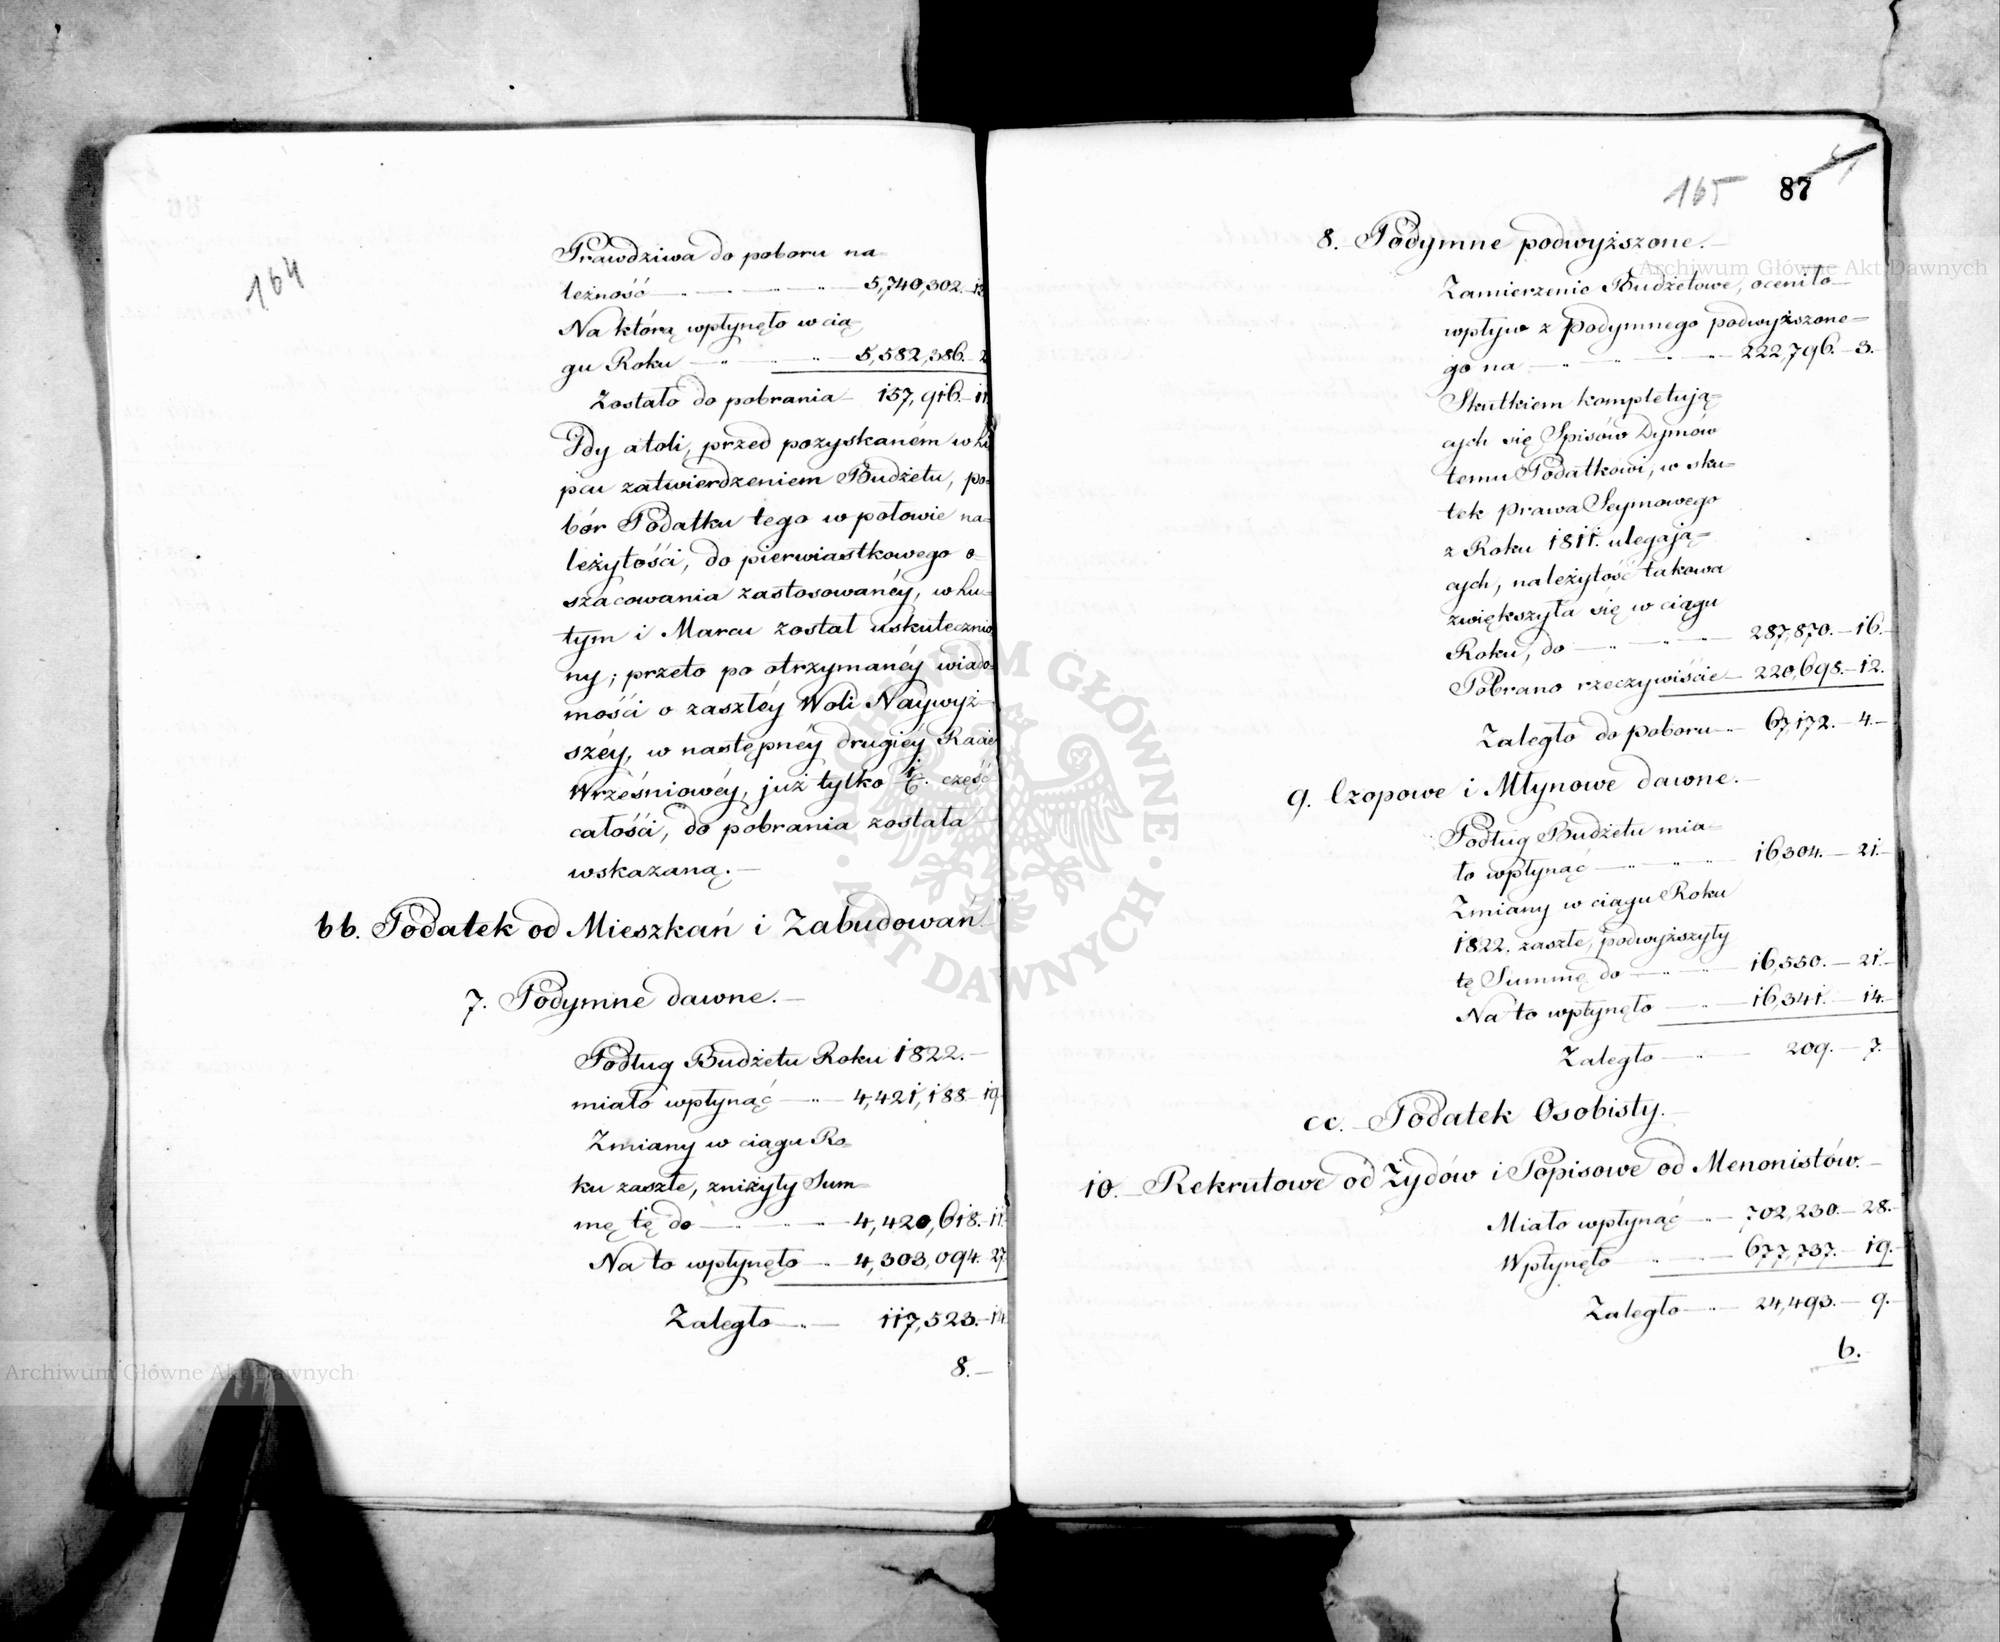 164
Prawdziwa do poboru na=
leżność 5,740,302.-13
Na którą wpłynęło w cią=
gu Roku 5,582,386.-2
Zostało do pobrania 157,916.-11
Gdy atoli, przed pozyskaném w Li
pcu zatwierdzeniem Budżetu, po=
bór Podatku tego w połowie na=
leżytości, do pierwiastkowego o=
szacowania zastosowanéy, w Lu=
tym i Marcu został uskutecznio
ny; przeto po otrzymanéy wiado=
mości o zaszłéy Woli Naywyż=
széy, w następnéy drugiéy Racie
Wrześniowéy, już tylko 1/6. część
całości, do pobrania została
wskazaną.
bb. Podatek od Mieszkań i Zabudowań.
7. Podymne dawne.
Podług Budżetu Roku 1822.
miało wpłynąć 4,421,188-19
Zmiany w ciągu Ro=
ku zaszłe, zniżyły Sum=
mę tę do 4,420,618.-11
Na to wpłynęło 4,303,094.-27
Zaległo 117,523.-14
8.
165 87
8. Podymne podwyższone.
Zamierzenie Budżetowe, oceniło
wpływ z Podymnego podwyższone=
go na 222,796.-3.
Skutkiem kompletują=
cych się Spisów Dymów
temu Podatkowi, w sku=
tek prawa Seymowego
z Roku 1811. ulegają=
cych, należytość takowa
zwiększyła się w ciągu
Roku, do 287,870.-16.
Pobrano rzeczywiście 220,698.-12.
Zaległo do poboru 67,172.-4.
9. Czopowe i Młynowe dawne.
Podług Budżetu mia=
ło wpłynąć 16304.-21.
Zmiany w ciągu Roku
1822. zaszłe, podwyższyły
tę Summę do 16,550.-21.
Na to wpłynęło 16,341.-14.
Zaległo 209.-7.
cc. Podatek Osobisty.
10. Rekrutowe od Żydów i Popisowe od Menonistów.
Miało wpłynąć 702,230.-28.
Wpłynęło 677,737.-19.
Zaległo 24,493.-9.
b.
Archiwum Główne Akt Dawnych
Archiwum Główne Akt Dawnych
ARCHIWUM GŁÓWNE · AKT DAWNYCH ·